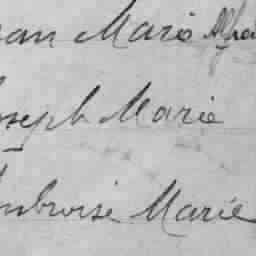 ean Marie Alfred
oseph Marie
mbroise Marie